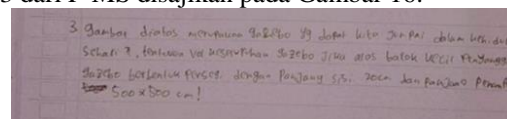 3 dari P-MS disajikan pada Gambar 10.
3. gambar diatas merupakan gazebo yg dapat kita jumpai dalam kehidu
sehari 2, tentukan vol keseluruhan gazebo jika alas balok kecil Penyangga
gazebo berbentuk Persegi dengan Panjang sisi 20cm dan Panjang
500 x 500 cm!